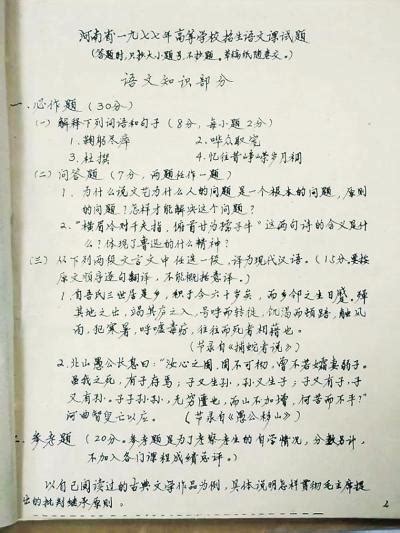 河南省一九七七年高等学校招生语文课试题
(答题时，只抄大小题号，不抄题。草稿纸随卷交。)
语文知识部分
一、必作题（30分）
(一) 解释下列词语和句子（8分，每小题2分）
1.鞠躬尽瘁 2.哗众取宠
3.杜撰 4.忆往昔峥嵘岁月稠
(二) 问答题（7分，两题任作一题）
1.为什么说文艺为什么人的问题是一个根本的问题，原则
的问题？怎样才能解决这个问题？
2.“横眉冷对千夫指，俯首甘为孺子牛”这两句诗的含义是什
么？体现了鲁迅的什么精神？
(三) 从下列两段文言文中任选一段，译为现代汉语。（15分。要按
原文顺序逐句翻译，不能概括意译。）
1.自吾氏三世居是乡，积于今六十岁矣，而乡邻之生日蹙。殚
其地之出，竭其庐之入，号呼而转徙，饥渴而顿踣，触风
雨，犯寒暑，呼嘘毒疠，往往而死者相藉也。
（节录自《捕蛇者说》）
2.北山愚公长息曰：“汝心之固，固不可彻，曾不若孀妻弱子。
虽我之死，有子存焉；子又生孙，孙又生子；子又有子，子
又有孙。子子孙孙，无穷匮也，而山不加增，何苦而不平？”
河曲智叟亡以应。（节录自《愚公移山》）
二、参考题（20分。参考题是为了考察考生的自学情况，分数另计，
不加入各门课程成绩总评。）
以自己阅读过的古典文学作品为例，具体说明怎样贯彻毛主席提
出的批判继承原则。
2